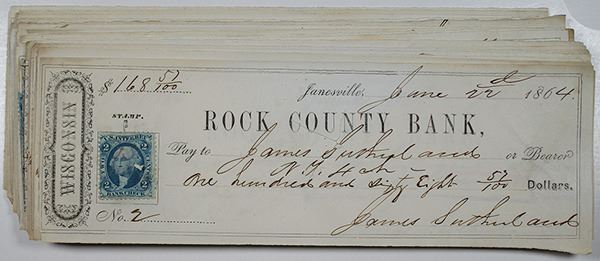 WISCONSIN
$168 57/100
Janesville, June 22d 1864.
STAMP.
ROCK COUNTY BANK,
U.S. INTER. REV.
2 2
BANK CHECK
Pay to James Sutherland or Bearer
One hundred and Sixty Eight 57/100 Dollars.
No. 2
James Sutherland